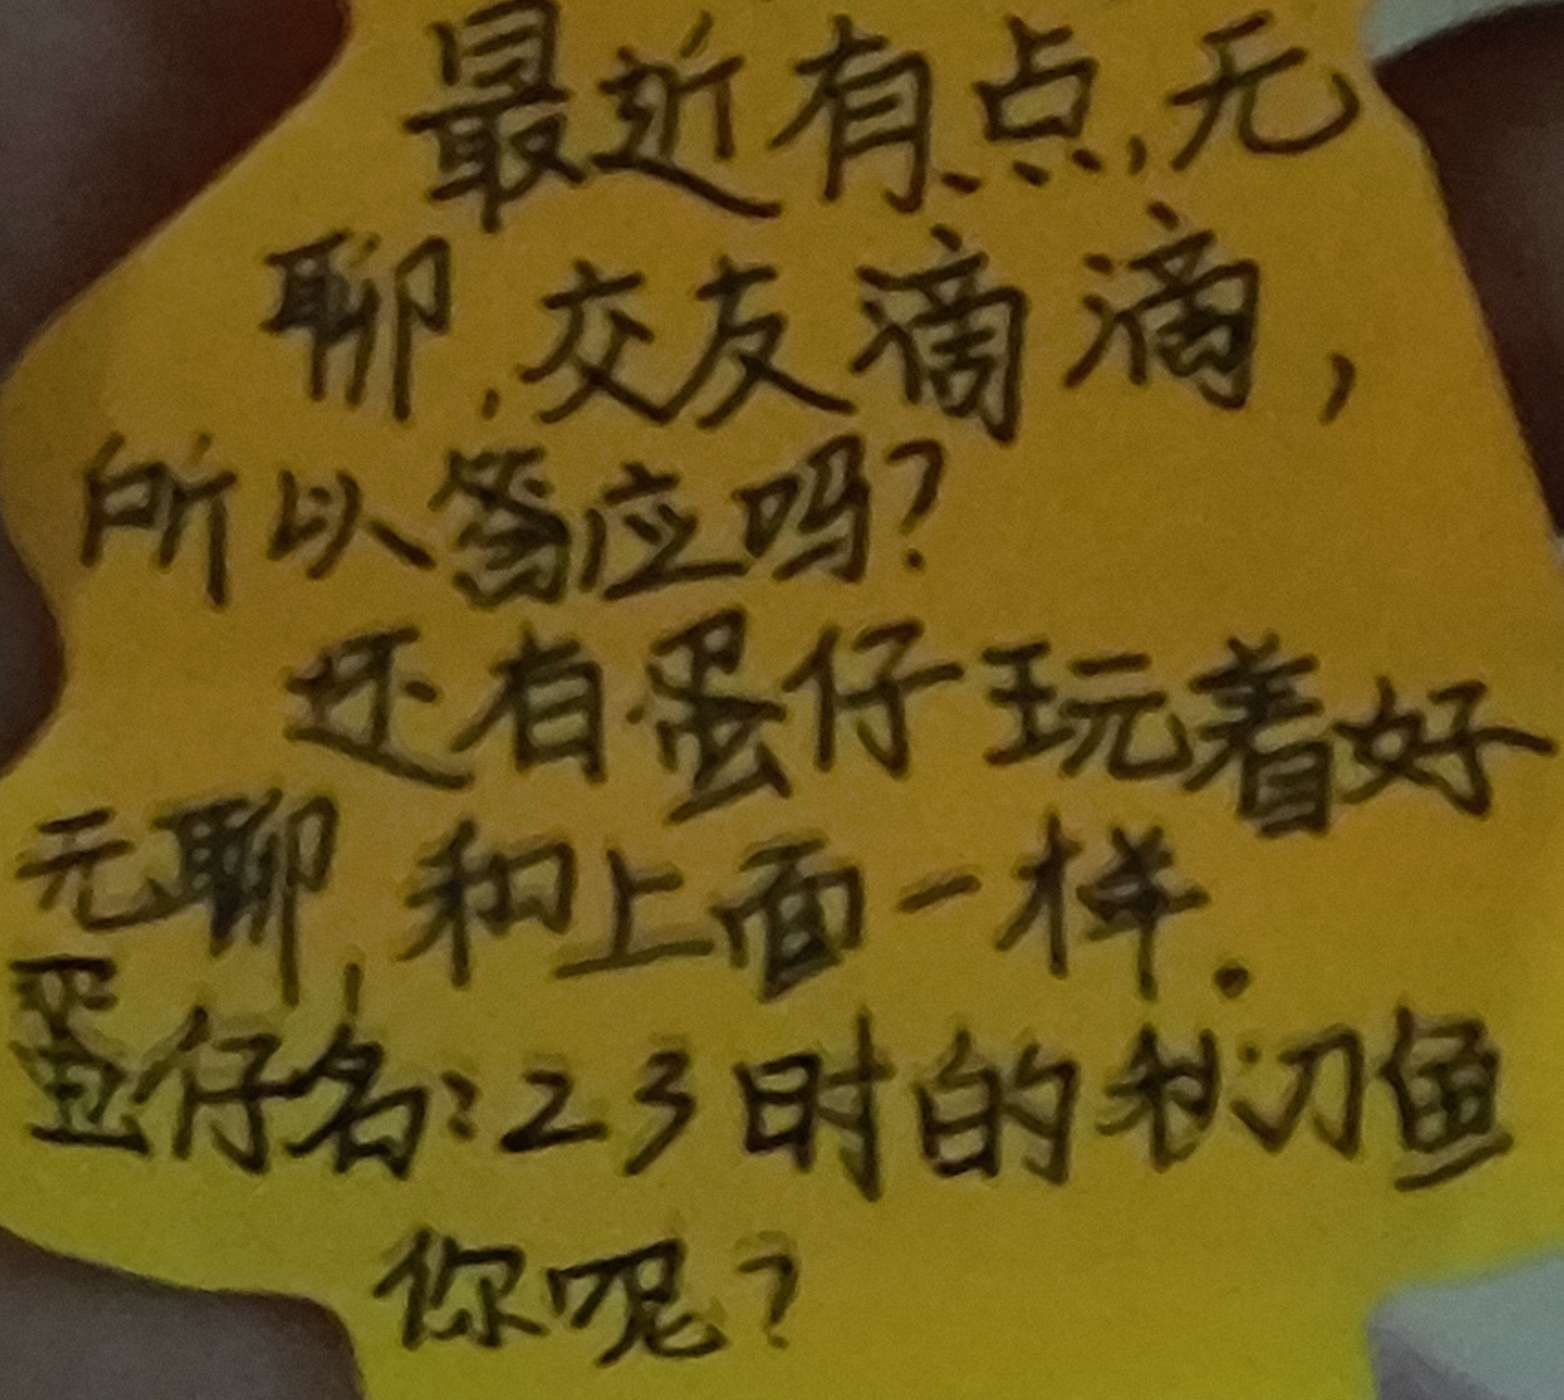 最近有点无
聊,交友滴滴,
所以答应吗?
还有蛋仔玩着好
无聊,和上面一样.
蛋仔名:23时的秋刀鱼
你呢?